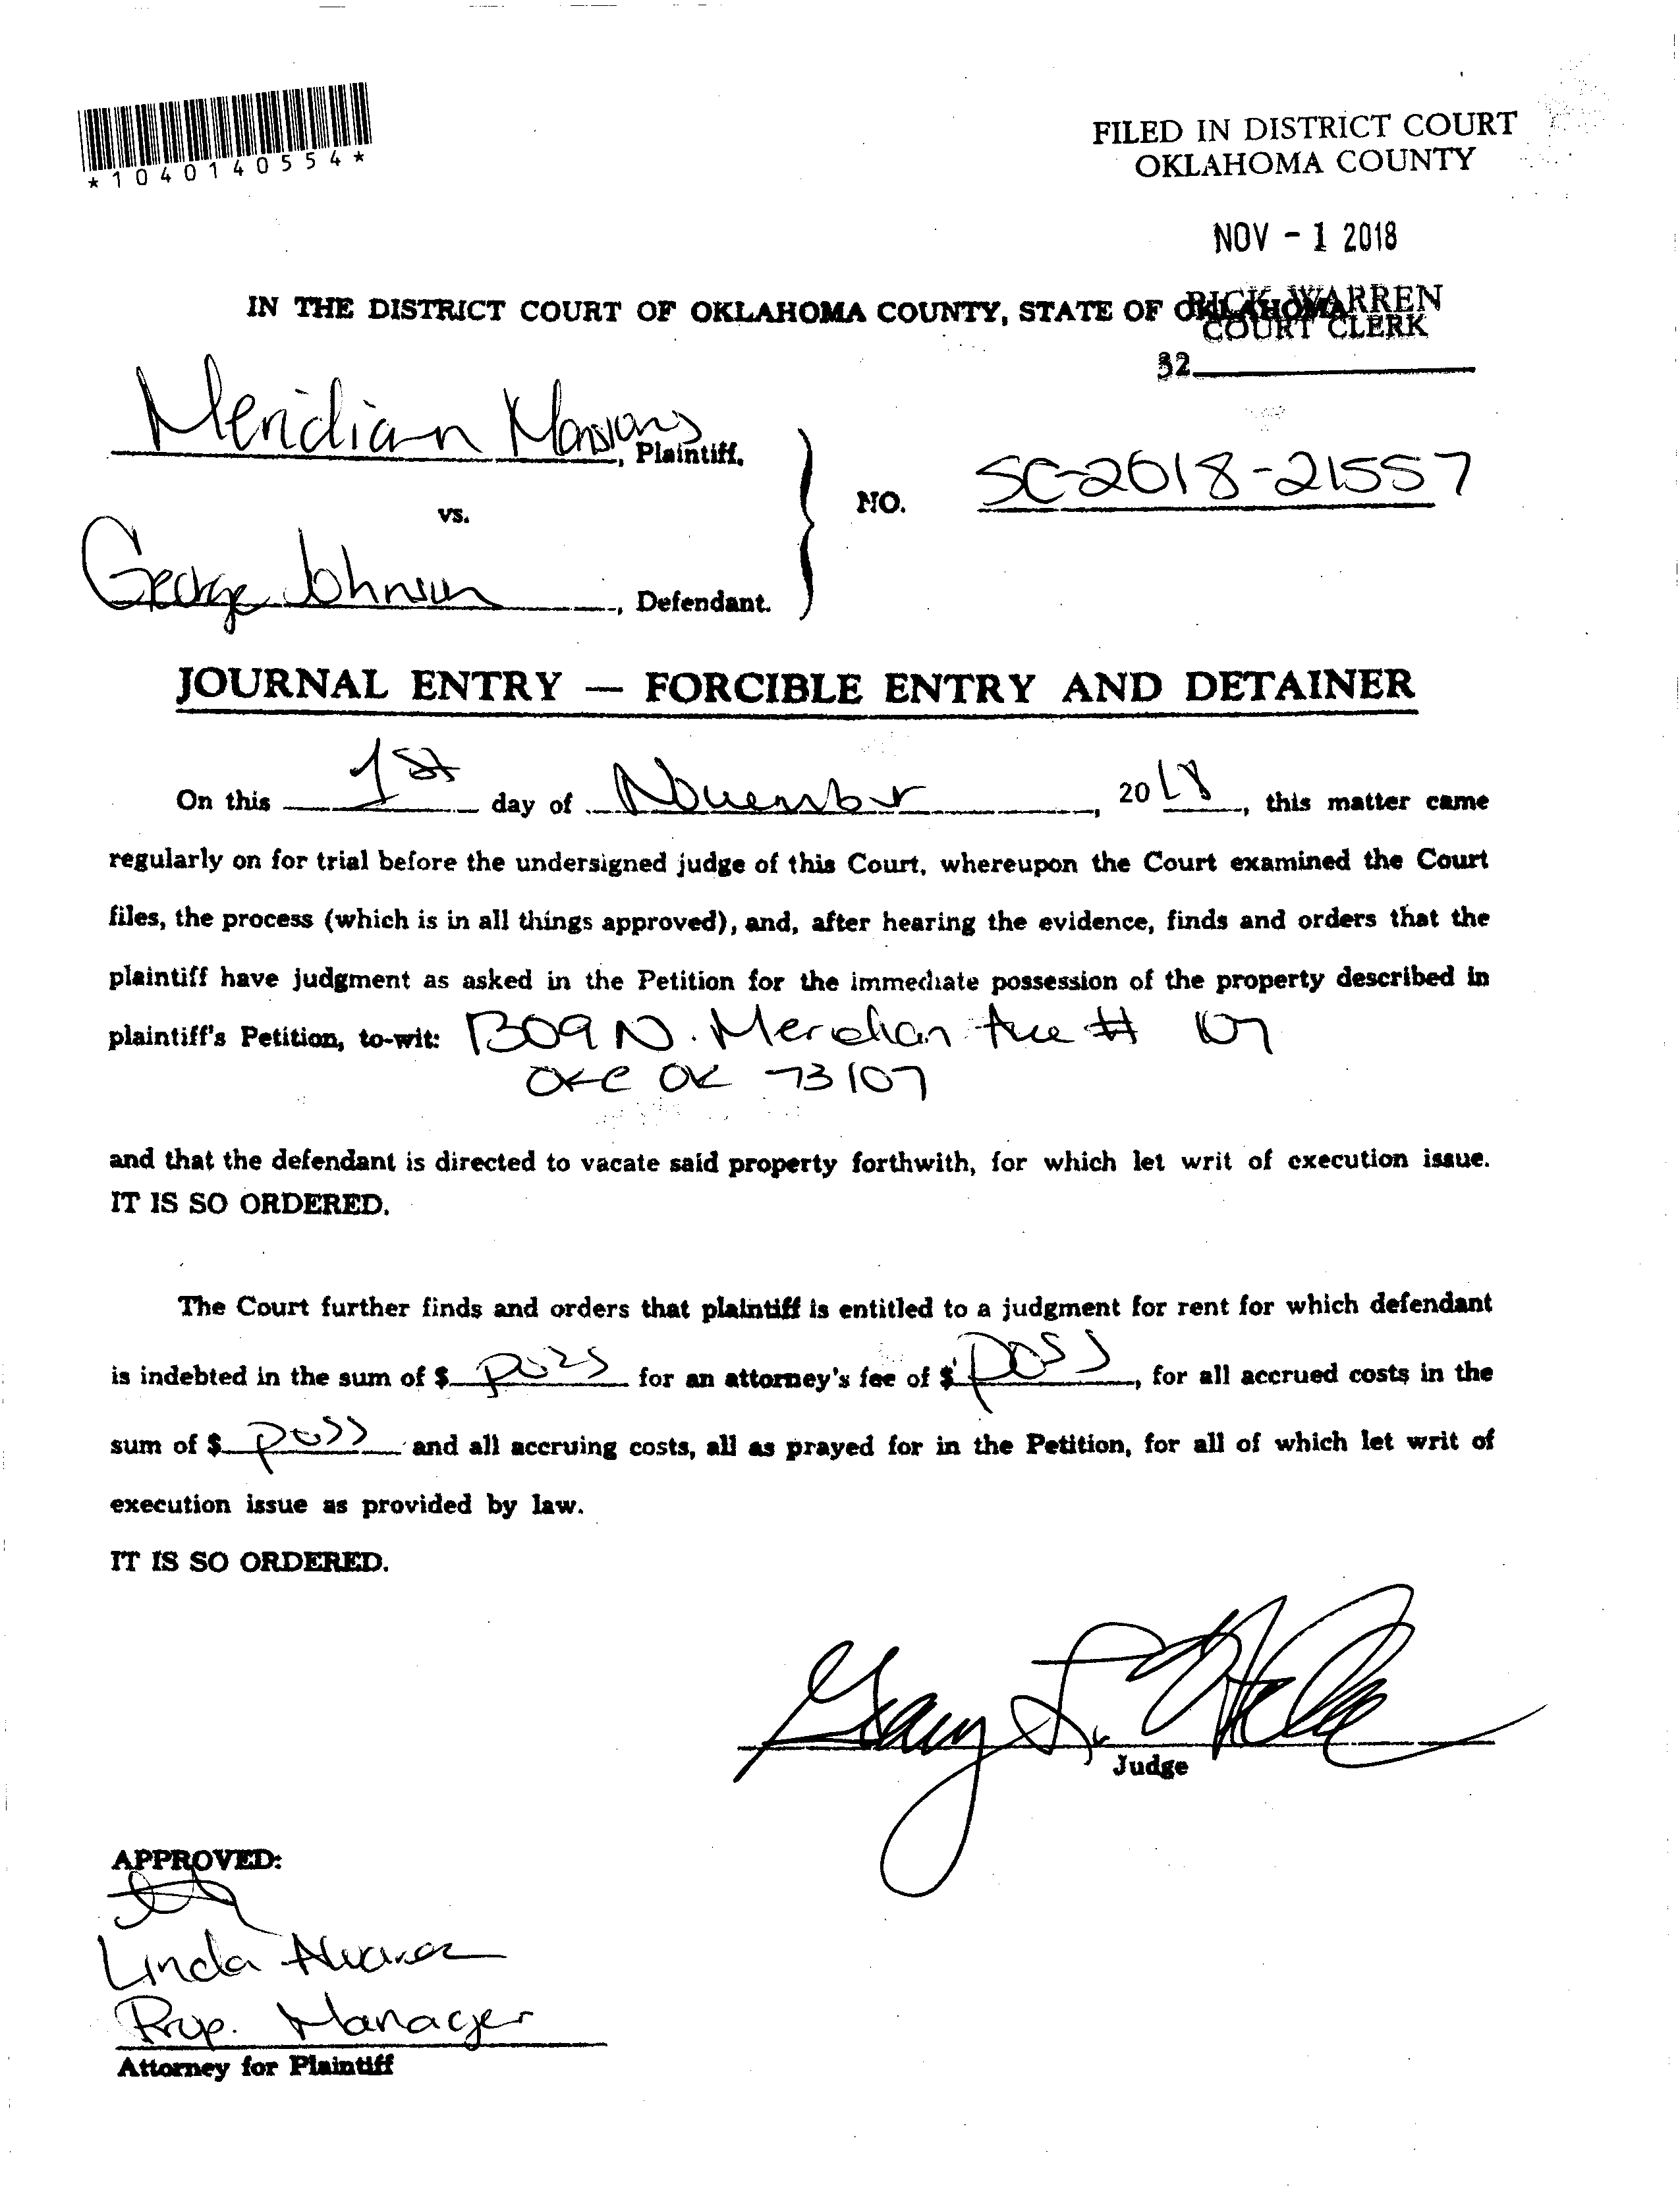 *1040140554*
FILED IN DISTRICT COURT
OKLAHOMA COUNTY
NOV - 1 2018
RICK WARREN
COURT CLERK
32
IN THE DISTRICT COURT OF OKLAHOMA COUNTY, STATE OF OKLAHOMA
Meridian Mansions, Plaintiff,
vs.
NO. SC-2018-21557
George Johnson, Defendant.
JOURNAL ENTRY — FORCIBLE ENTRY AND DETAINER
On this 1st day of November, 2018, this matter came
regularly on for trial before the undersigned judge of this Court, whereupon the Court examined the Court
files, the process (which is in all things approved), and, after hearing the evidence, finds and orders that the
plaintiff have judgment as asked in the Petition for the immediate possession of the property described in
plaintiff's Petition, to-wit: 1309 N. Meridian Ave # 107
OKC OK 73107
and that the defendant is directed to vacate said property forthwith, for which let writ of execution issue.
IT IS SO ORDERED.
The Court further finds and orders that plaintiff is entitled to a judgment for rent for which defendant
is indebted in the sum of $ poss for an attorney's fee of $ poss, for all accrued costs in the
sum of $ poss and all accruing costs, all as prayed for in the Petition, for all of which let writ of
execution issue as provided by law.
IT IS SO ORDERED.
Judge
APPROVED:
Linda Alvarez
Prop. Manager
Attorney for Plaintiff